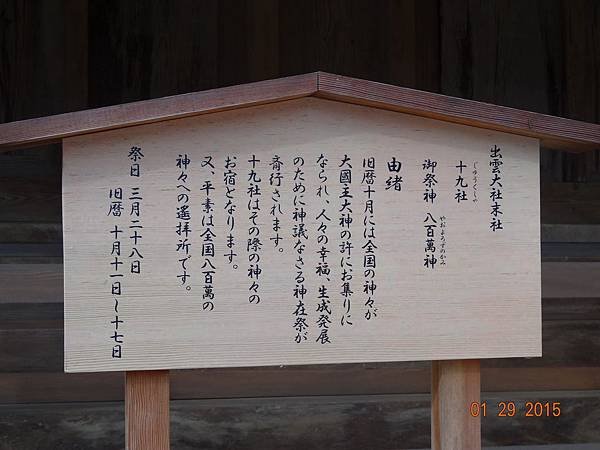 出雲大社末社
じゅうくしゃ
十九社
やおよろずのかみ
御祭神 八百萬神
由緒
旧暦十月には全国の神々が
大國主大神の許にお集りに
なられ、人々の幸福、生成発展
のために神議なさる神在祭が
斎行されます。
十九社はその際の神々の
お宿となります。
又、平素は全国八百萬の
神々への遙拝所です。
祭日 三月二十八日
旧暦 十月十一日~十七日
01 29 2015